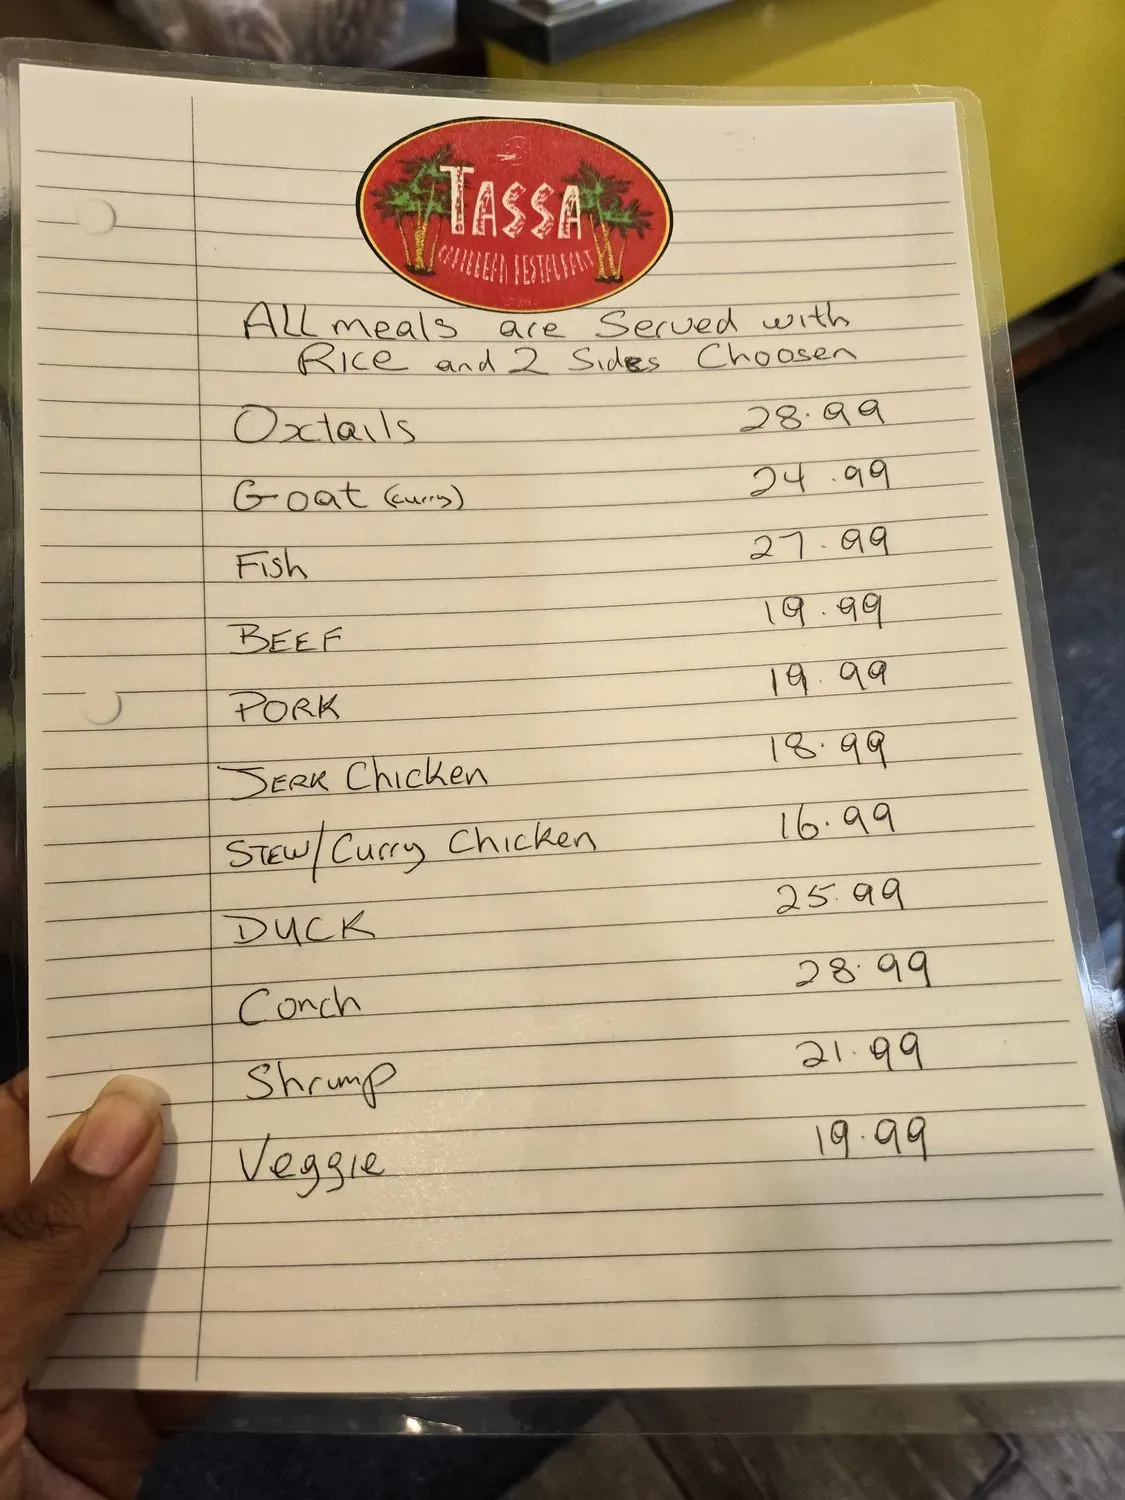 TASSA
CARIBBEAN RESTAURANT
ALL meals are Served with
RICE and 2 Sides Choosen
Oxtails 28.99
Goat (curry) 24.99
Fish 27.99
BEEF 19.99
PORK 19.99
JERK Chicken 18.99
STEW/Curry Chicken 16.99
DUCK 25.99
Conch 28.99
Shrimp 21.99
Veggie 19.99